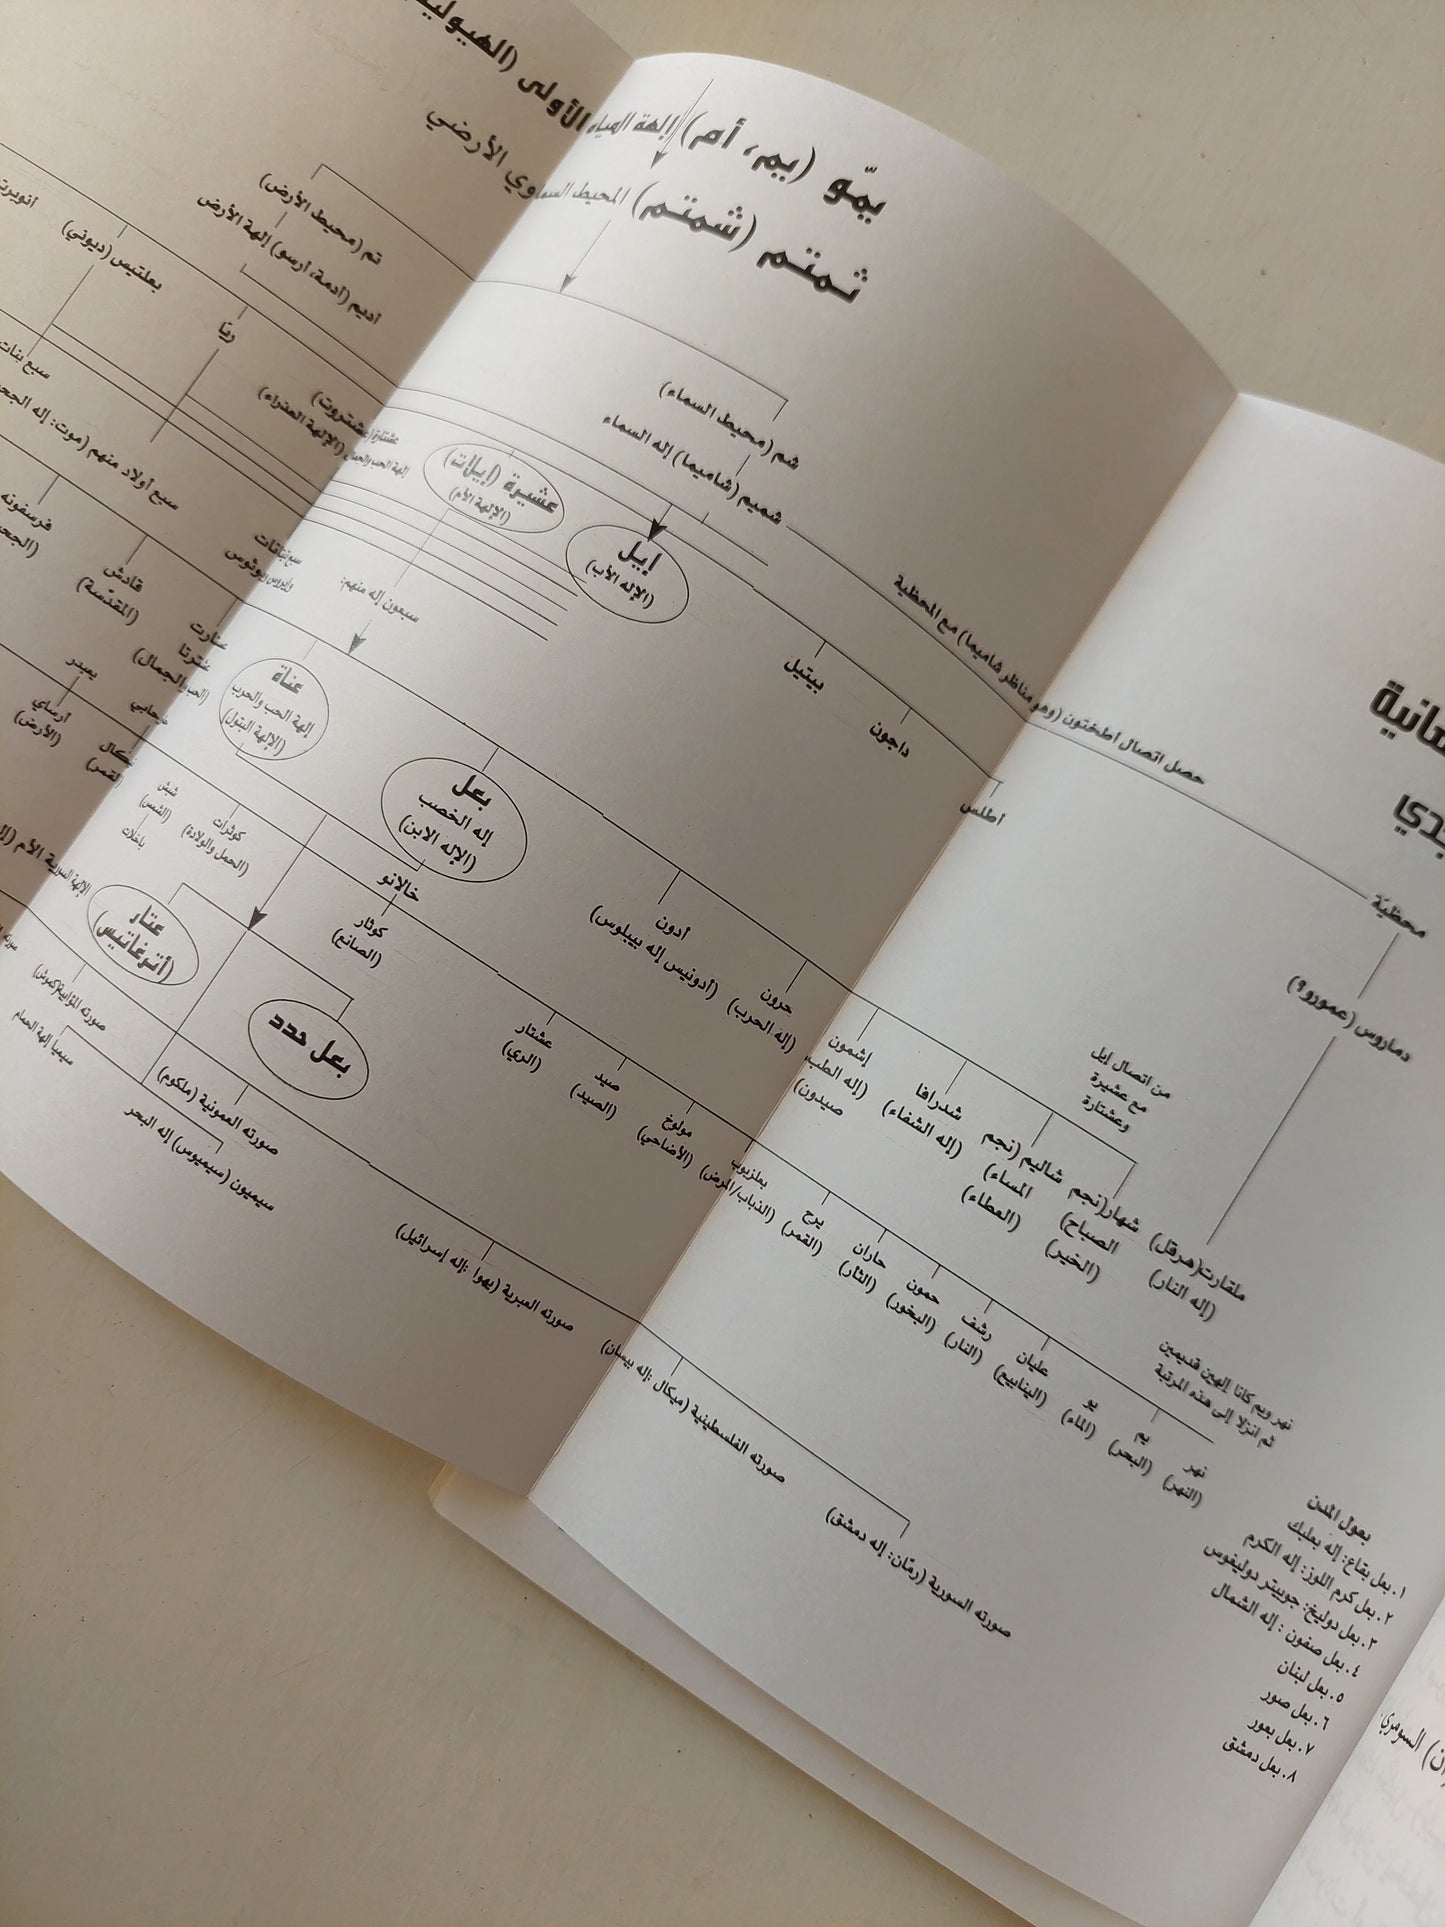 يمّو (يم، أم) إلهة المياه الأولى (الهيولية
ثمتم (شمتم) المحيط السماوي الأرضي
شم (محيط السماء)
شميم (شاميما) إله السماء
تم (محيط الأرض)
أديم (أدمة، أرسو) إلهة الأرض
حصل اتصال اطخلتون (وهو مناظر شاميما) مع المحظية
محظيّة
دماروس (عمورو؟)
ملقارت (هرقل)
(إله النار)
اطلس
داجون
بيتيل
إيل
(الإله الأب)
عشيرة (إيلات)
(الإلهة الأم)
عشتارة (عشتروت)
إلهة الحب والجمال (الإلهة العذراء)
ريّا
بعلتيس (ديوني)
سبعون إله منهم:
سبع أولاد منهم (موت: إله
سبع بنات
من اتصال إيل
مع عشيرة
وعشتارة
شهار (نجم
الصباح)
(الخير)
شاليم (نجم
المساء)
(العطاء)
شدرافا
(إله الشفاء)
إشمون
(إله الطب،
صيدون)
حرون
(إله الحرب)
أدون
(أدونيس إله بيبلوس)
بعل
إله الخصب
(الإله الابن)
عناة
إلهة الحب والحرب
(الإلهة البتول)
قادش
(المقدّسة)
فرسفونه
خالانو
كوثار
(الصانع)
نهر ويم كانا إلهين قديمين
ثم انزلا إلى هذه المرتبة
نهر
(النهر)
يم
(البحر)
يو
(الماء)
عليان
(الينابيع)
رشف
(النار)
حمون
(البخور)
حاران
(الثأر)
يرح
(القمر)
بعلزبوب
(الذباب/المرض)
مولوخ
(الأضاحي)
صيد
(الصيد)
عشتار
(الري)
كوثرات
(الحمل والولادة)
شبش
(الشمس)
باخلات
أرساي
(الأرض)
يعبدر
بعل حدد
عتار
(أترغاتيس)
الإلهة السورية الأم
صورته السورية (رمّان: إله دمشق)
صورته الفلسطينية (ميكال: إله بيسان)
صورته العبرية (يهوا: إله إسرائيل)
صورته العمونية (ملكوم)
صورته المؤابية (كموش)
سيميون (سيميوس) إله البحر
سيميا إلهة الحمام
بعول المدن
١. بعل بقاع: إله بعلبك
٢. بعل كرم اللوز: إله الكرم
٣. بعل دوليخ: جوبيتر دوليفوس
٤. بعل صفون: إله الشمال
٥. بعل لبنان
٦. بعل صور
٧. بعل بعور
٨. بعل دمشق